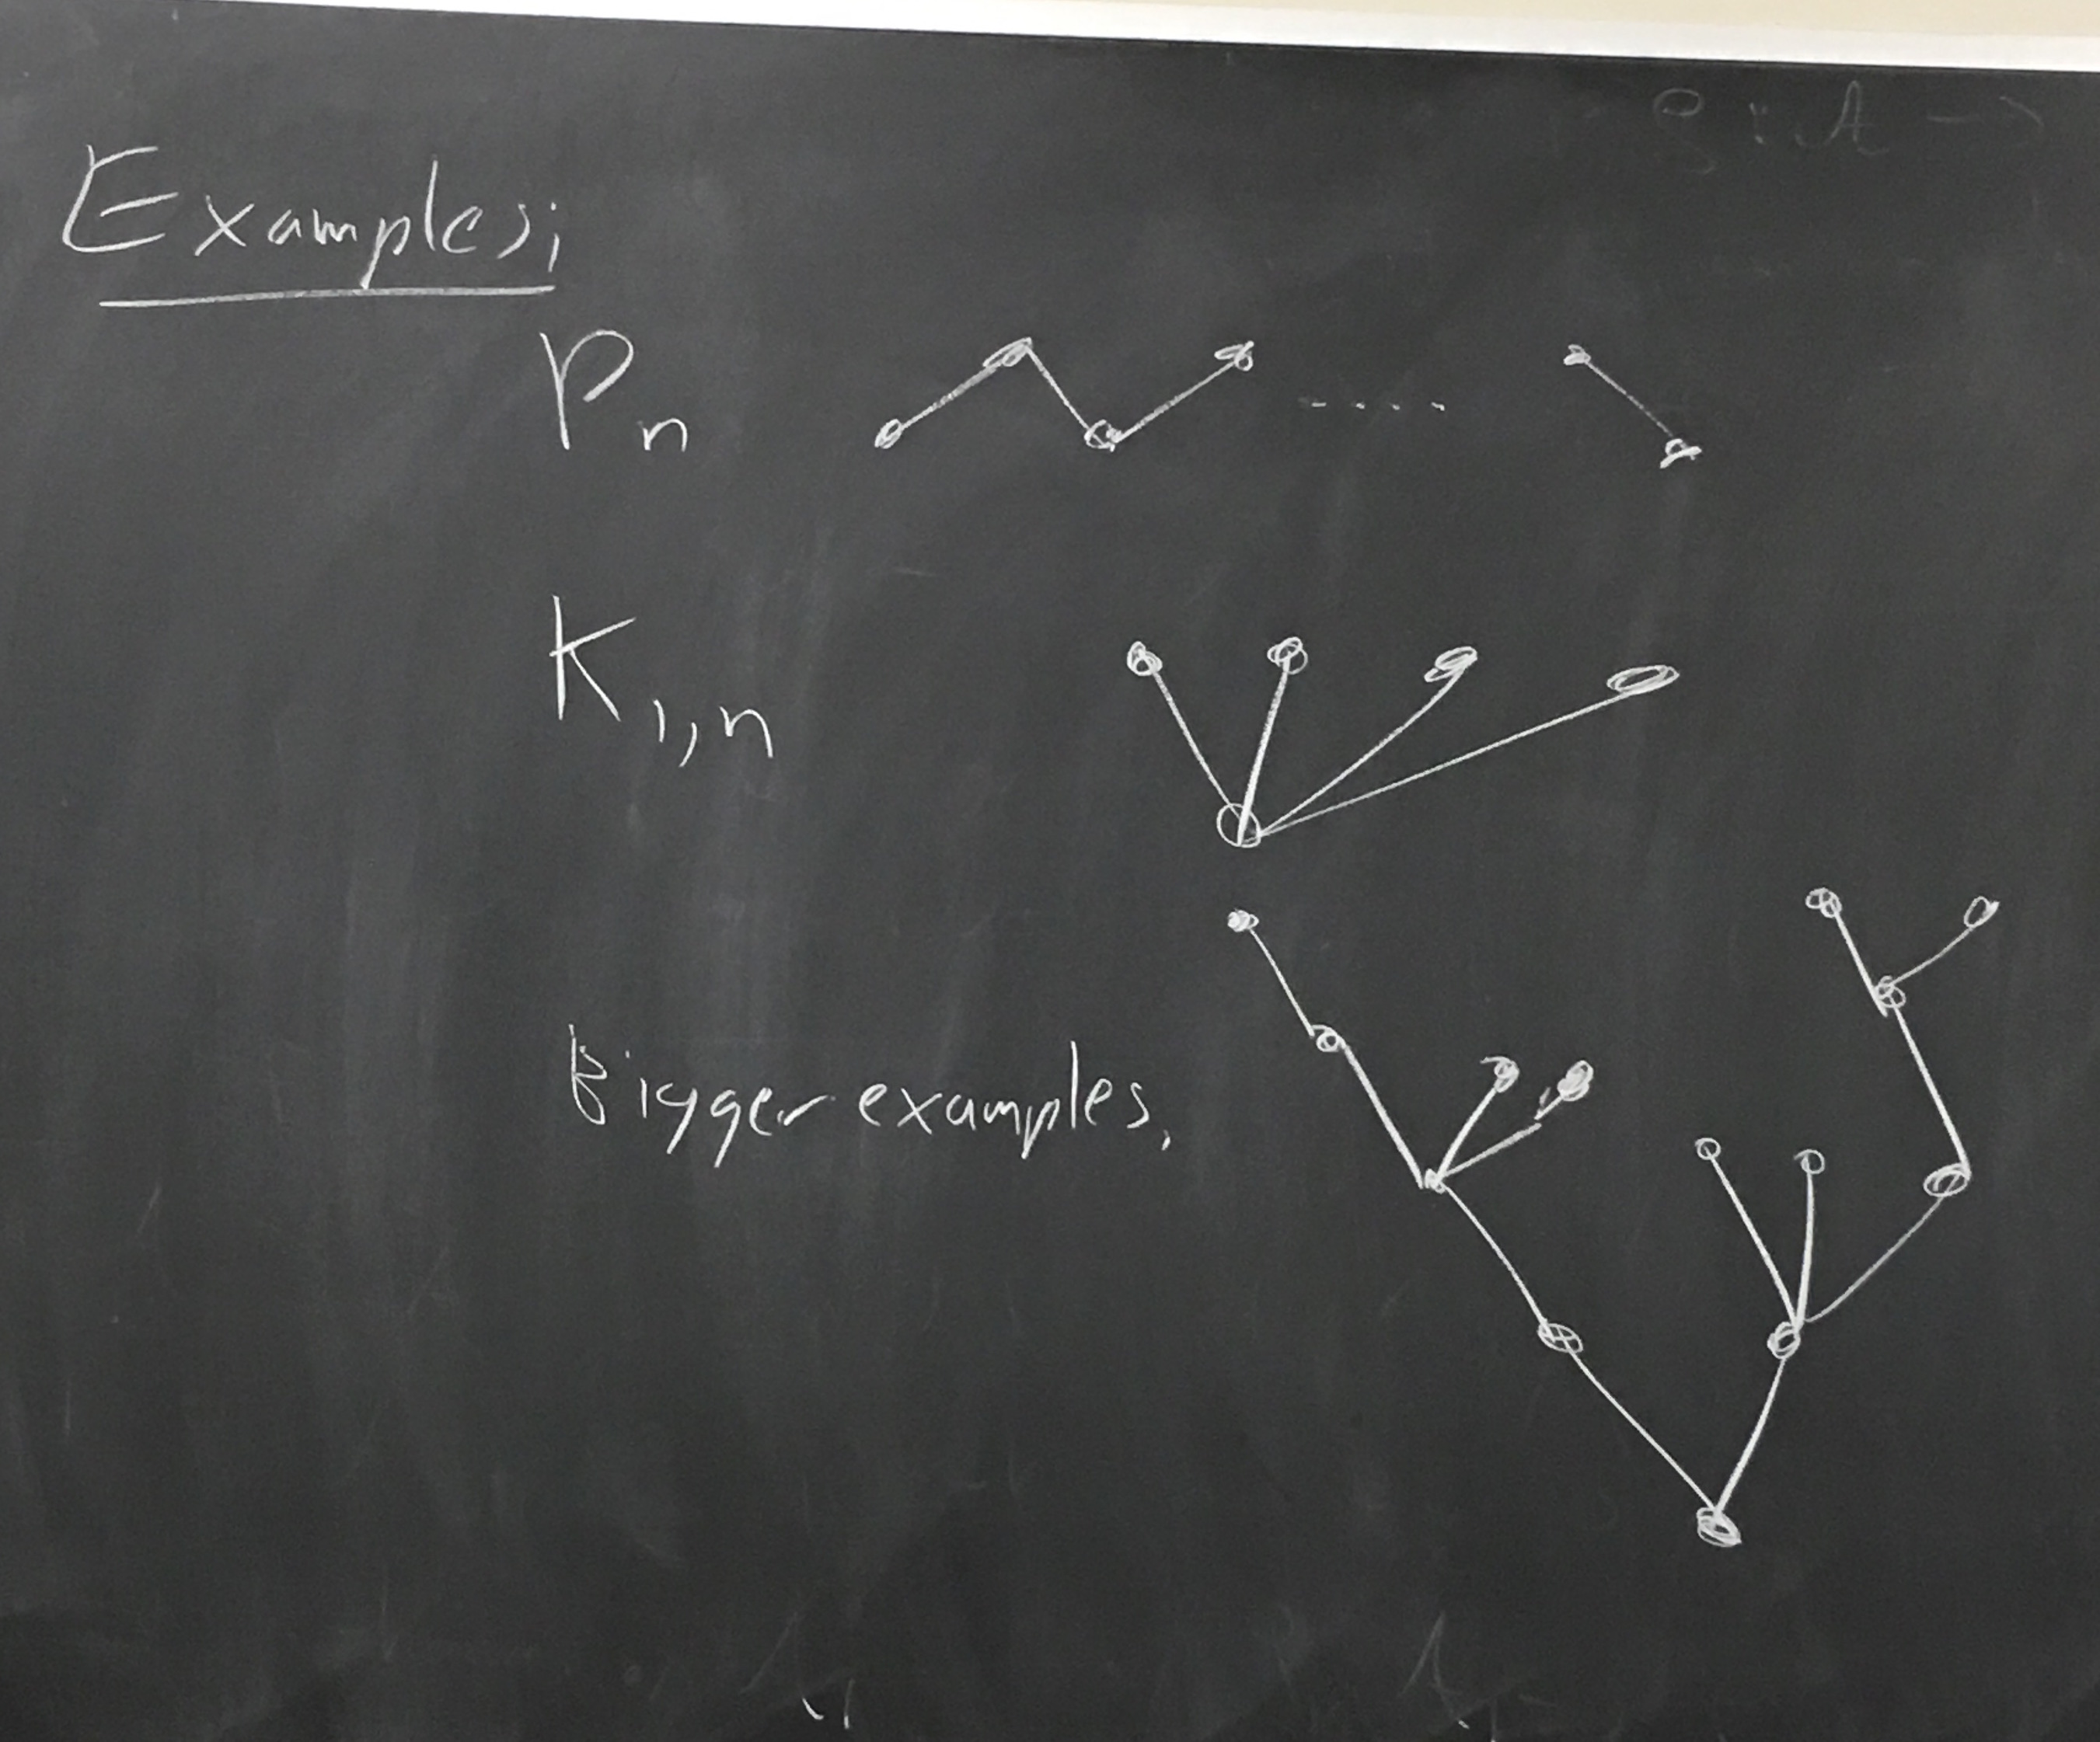 Examples;
Pn
K1,n
Bigger examples.